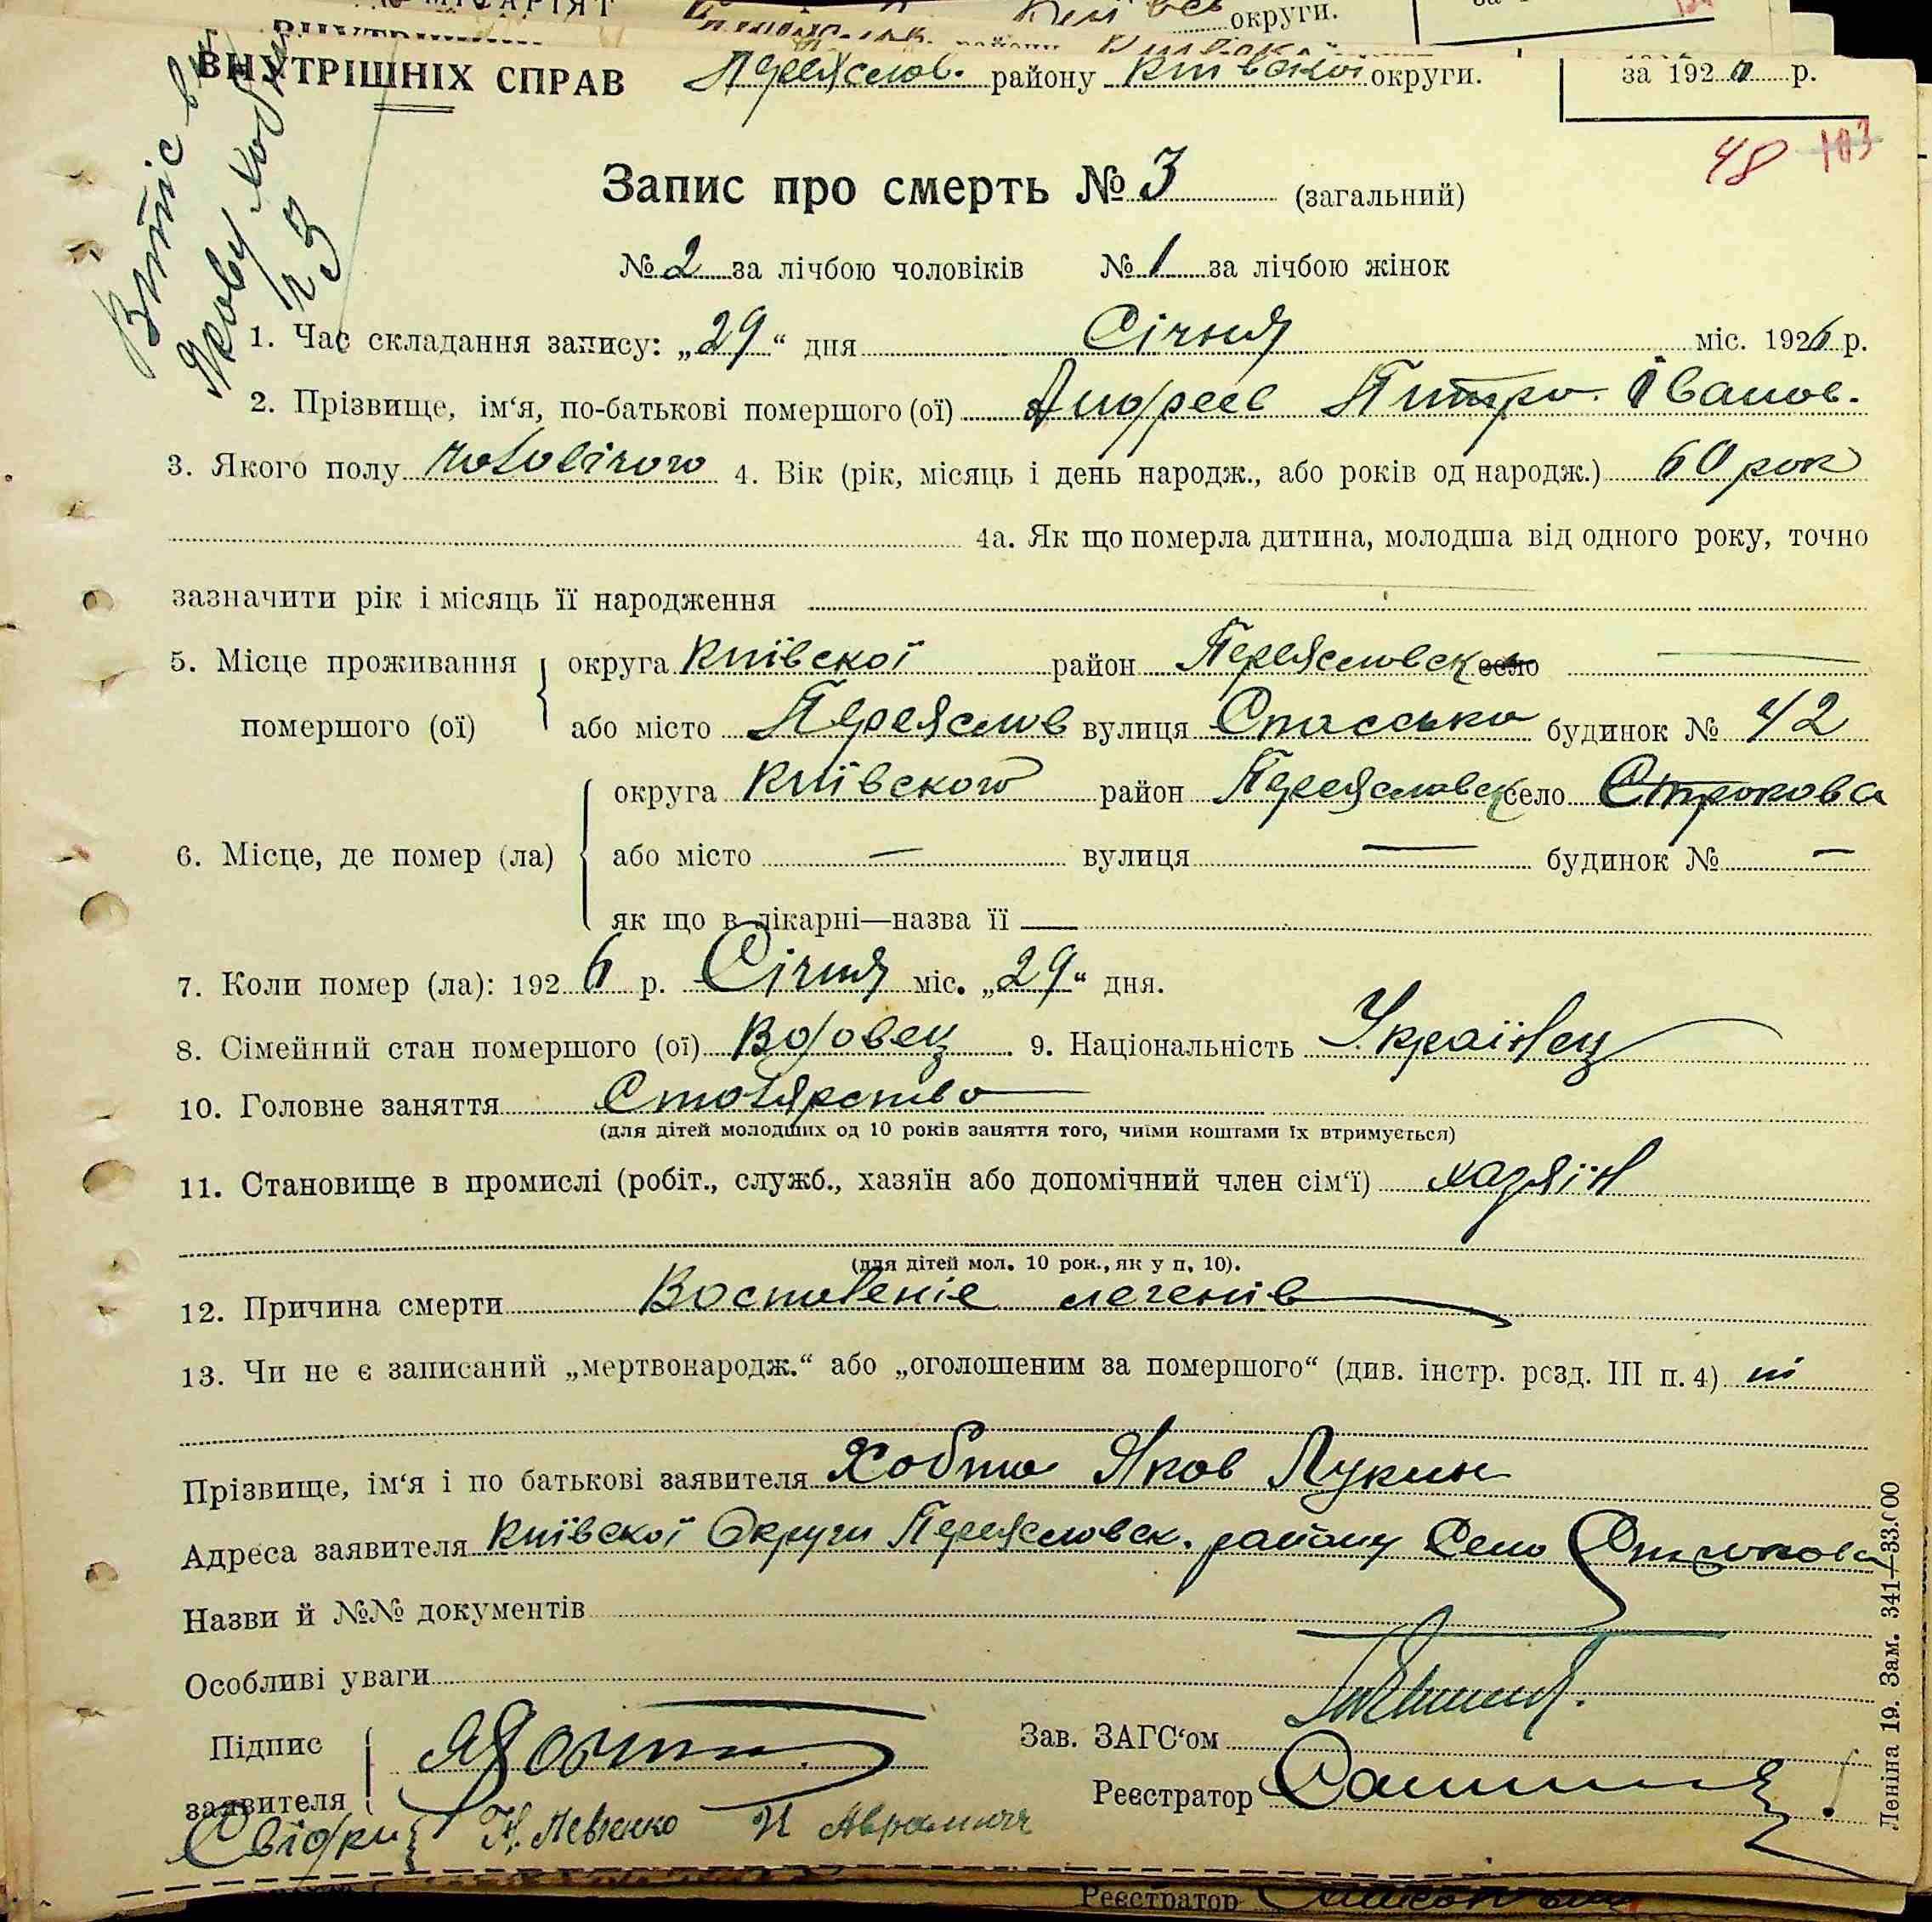 округи.
ВНУТРІШНІХ СПРАВ Переяслов. району Київської округи. за 192 р.
48 103
Запис про смерть № 3 (загальний)
№ 2 за лічбою чоловіків № 1 за лічбою жінок
Якову
1. Час складання запису: „29“ дня Січня міс. 1926 р.
2. Прізвище, ім‘я, по-батькові помершого (ої) Андреев Питро Іванов.
3. Якого полу чоловічого 4. Вік (рік, місяць і день народж., або років од народж.) 60 рок
4а. Як що померла дитина, молодша від одного року, точно
зазначити рік і місяць її народження
5. Місце проживання помершого (ої) округа Київскої район Переясловск село —
або місто Переяслов вулиця Спасська будинок № 42
6. Місце, де помер (ла) округа Київского район Переясловск село Строкова
або місто — вулиця — будинок № —
як що в лікарні—назва її —
7. Коли помер (ла): 1926 р. Січня міс. „29“ дня.
8. Сімейний стан помершого (ої) Вдовец 9. Національність Українец
10. Головне заняття Столярство
(для дітей молодших од 10 років заняття того, чиїми коштами їх втримується)
11. Становище в промислі (робіт., служб., хазяїн або допомічний член сім‘ї) хазяїн
(для дітей мол. 10 рок., як у п. 10).
12. Причина смерти Воспаленіе легенів
13. Чи не є записаний „мертвонародж.“ або „оголошеним за помершого“ (див. інстр. розд. III п. 4) ні
Прізвище, ім‘я і по батькові заявителя Хобта Яков Лукич
Адреса заявителя Київскої Округи Переясловск. району Село Строкова
Назви й №№ документів
Особливі уваги
Підпис заявителя ЯХобта Зав. ЗАГС‘ом
Реєстратор
Свідки Н. Левченко И Аврамич
Леніна 19. Зам. 341—33.000
Реєстратор